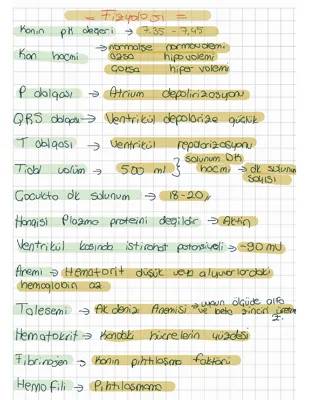 = Fizyoloji =
Kanın pH değeri → 7.35 - 7.45
Kan hacmi → normalse normovolemi
azsa hipovolemi
çoksa hipervolemi
P dalgası → Atrium depolirizasyonu
QRS dalgası → Ventrikül depolarize
T dalgası → Ventrikül repolarizasyonu
Tidal volüm → 500 ml } solunum
hacmi → dk solunum
sayısı
Çocukta dk solunum → 18-20
Hangisi Plazma proteini değildir → Aktin
Ventrikül kasında istirahat potansiyeli → -90 mV
Anemi → Hematokrit düşük veya alyuvarlardaki
hemoglobin az
Talesemi → Akdeniz Anemisi → uygun ölçüde alfa
ve beta zinciri
Hematokrit → Kandaki hücrelerin yüzdesi
Fibrinojen → Kanın pıhtılaşma faktörü
Hemofili → Pıhtılaşmama